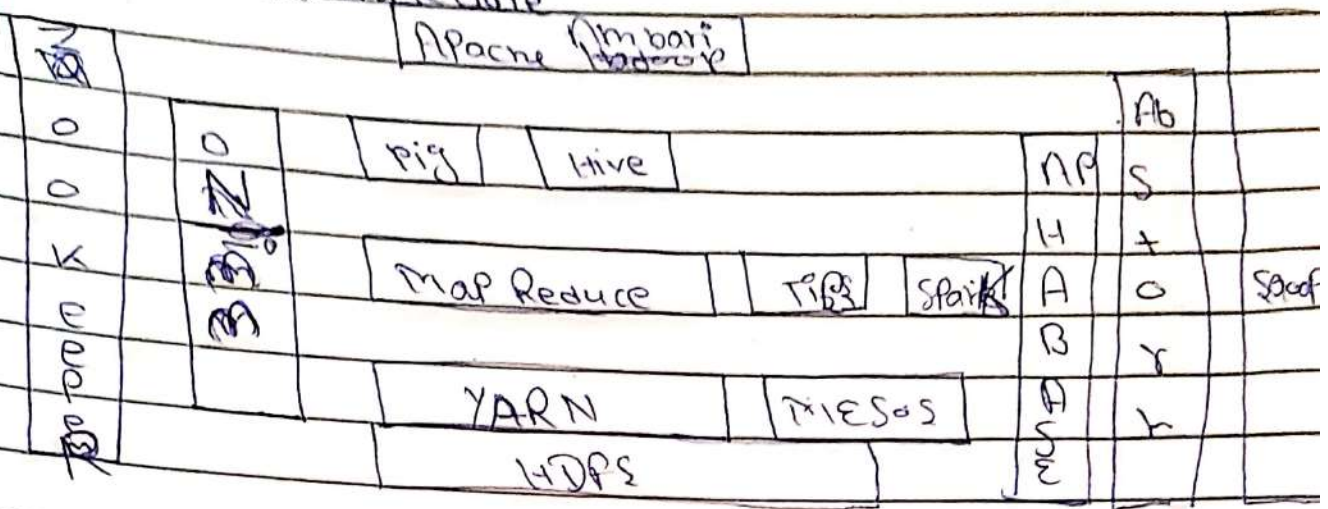 Apache Ambari
Zookeeper
Pig
Hive
Map Reduce
Spark
YARN
MESOS
HDFS
AP HABASE
Abstory
Sqoop